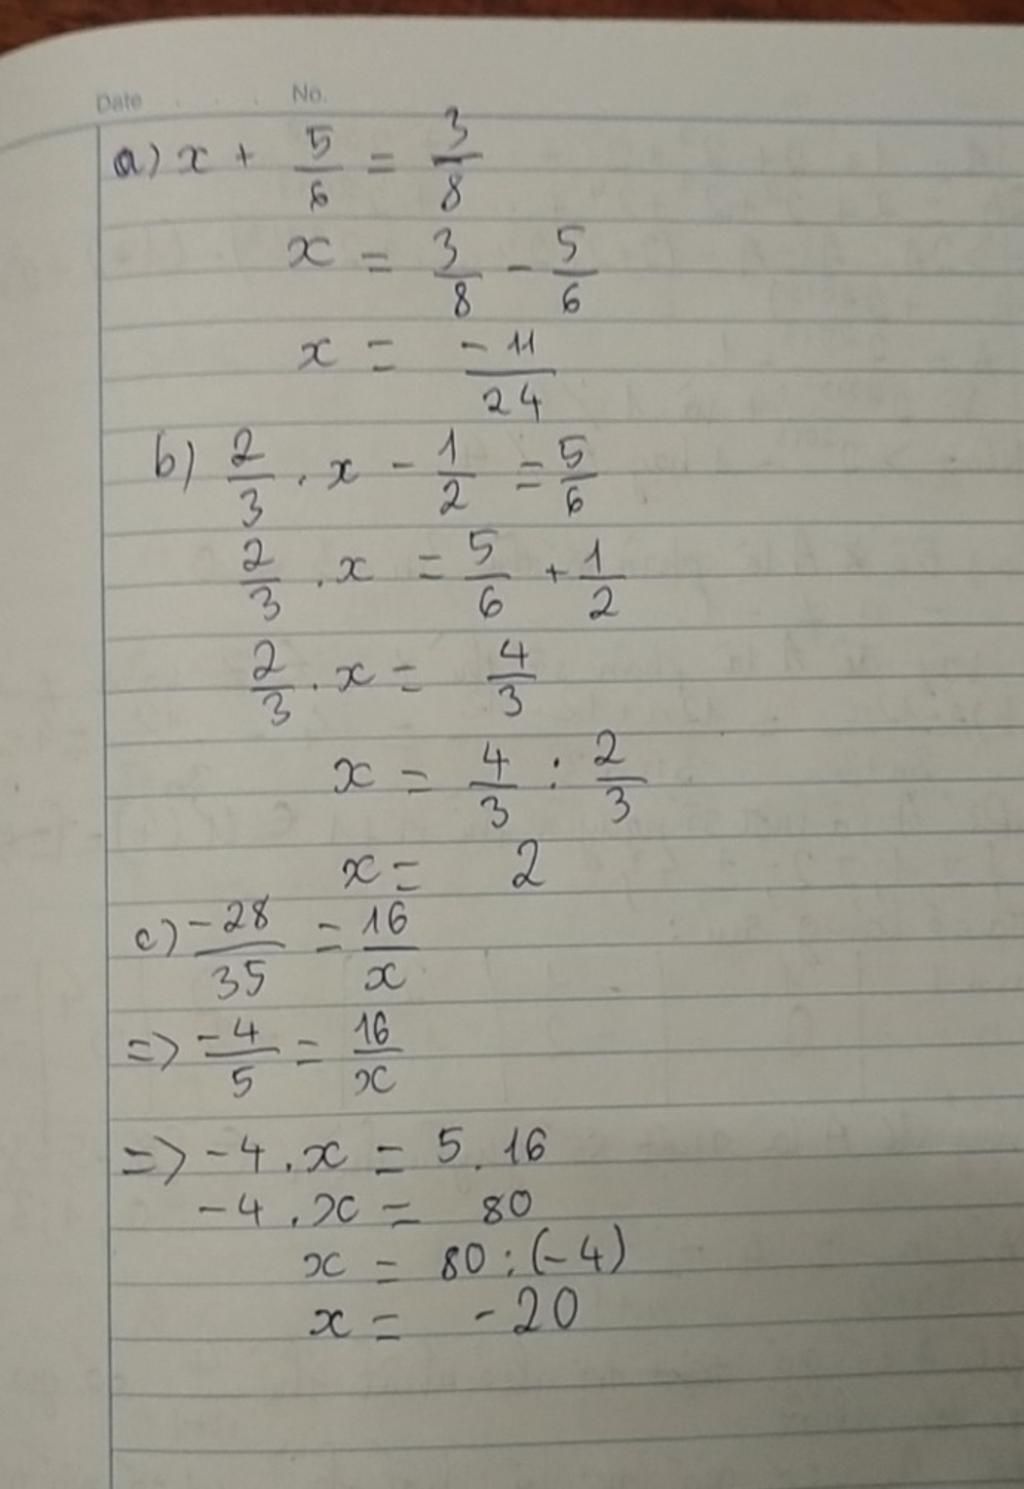 Date No.
a) x + 5/6 = 3/8
x = 3/8 - 5/6
x = -11/24
b) 2/3 . x - 1/2 = 5/6
2/3 . x = 5/6 + 1/2
2/3 . x = 4/3
x = 4/3 : 2/3
x = 2
c) -28/35 = 16/x
=> -4/5 = 16/x
=> -4 . x = 5 . 16
-4 . x = 80
x = 80 : (-4)
x = -20